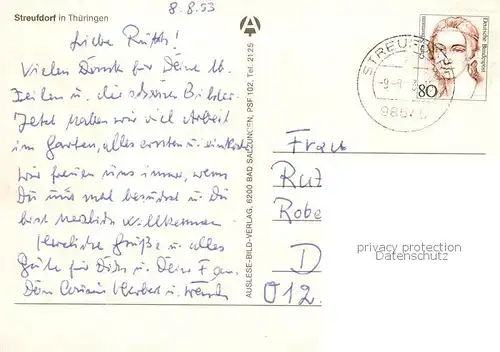 Streufdorf in Thüringen
8.8.93
Liebe Ruth!
Vielen Dank für Deine lb.
Zeilen u. die schönen Bilder.
Jetzt haben wir viel Arbeit
im Garten, alles ernten u.
Wir freuen uns immer, wenn
Du uns mal besuchst u. Du
bist herzlich willkommen.
Herzliche Grüße u. alles
Gute für Dich u. Deine Fam.
Herbert u.
AUSLESE-BILD-VERLAG, 6200 BAD SALZUNGEN, PSF 102, Tel. 2125
STREUFD
98646
Deutsche Bundespost
80
Frau
Rut
Robe
D
O12.
privacy protection
Datenschutz